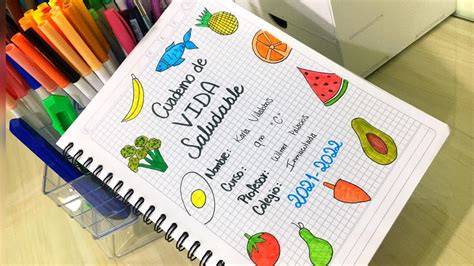 Cuaderno de
VIDA
Saludable
Nombre: Karla Villalobos
Curso: 9no "C"
Profesor: Wilmer Palacios
Colegio: Inmaculada
2021-2022